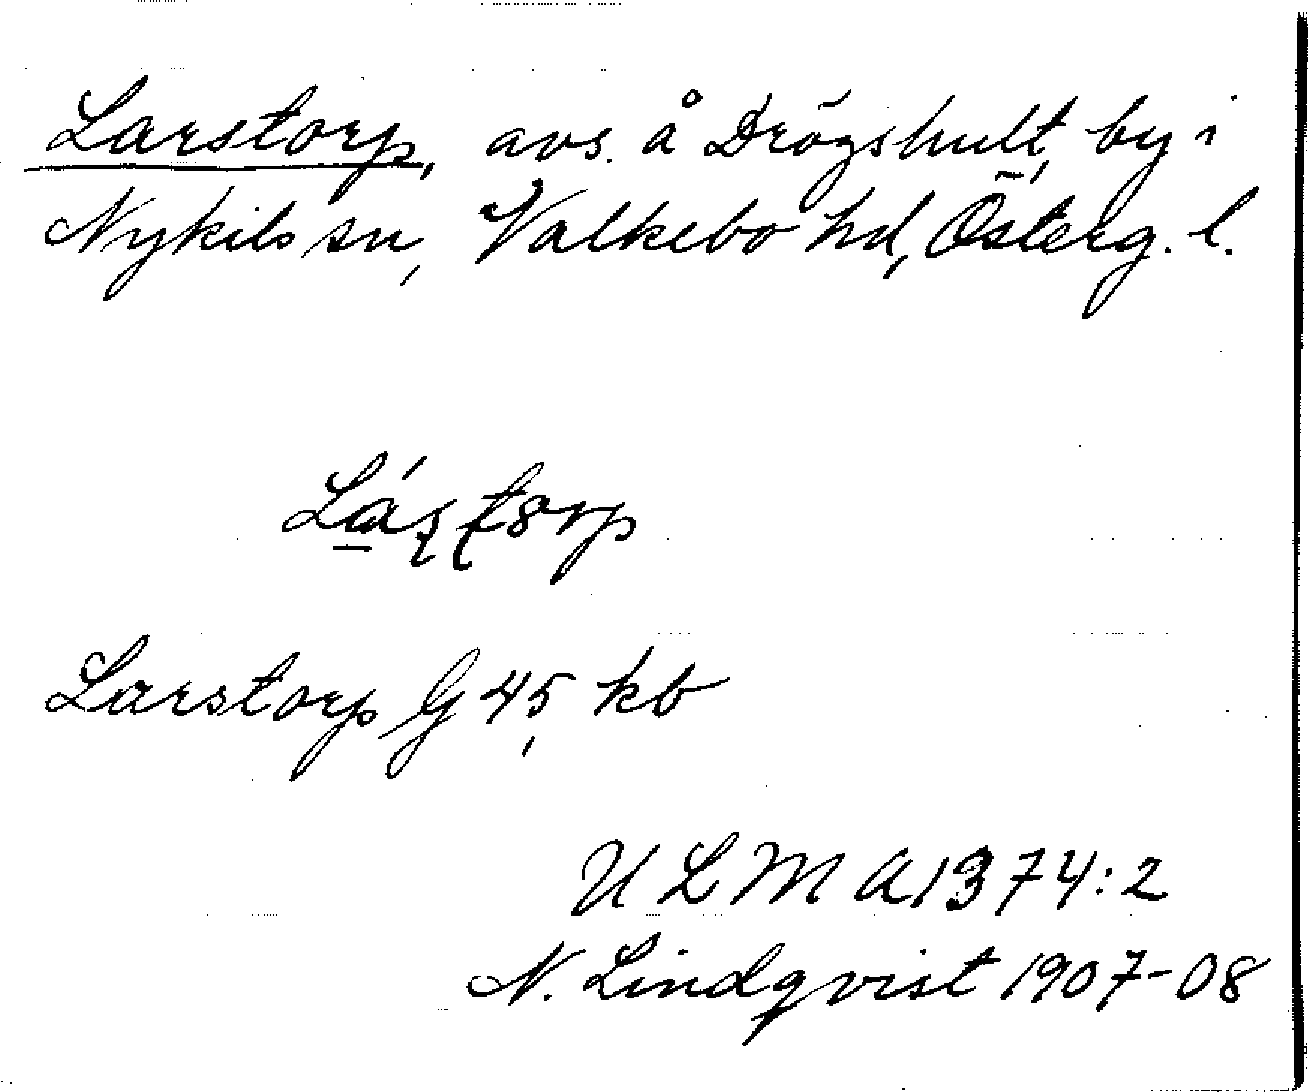 Larstorp, avs. å Drögshult, by i
Nykils sn, Valkebo hd, Österg. l.
Larstorp G 45, kb
ULMA 1374:2
N. Lindqvist 1907-08